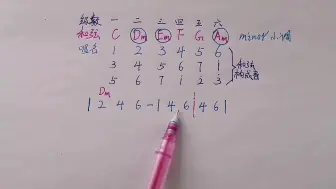 级数 一 二 三 四 五 六
和弦 C Dm Em F G Am minor 小调
唱名 1 2 3 4 5 6
3 4 5 6 7 1
5 6 7 1 2 3
和弦构成音
Dm
| 2 4 6 - | 4 6 | 4 6 |